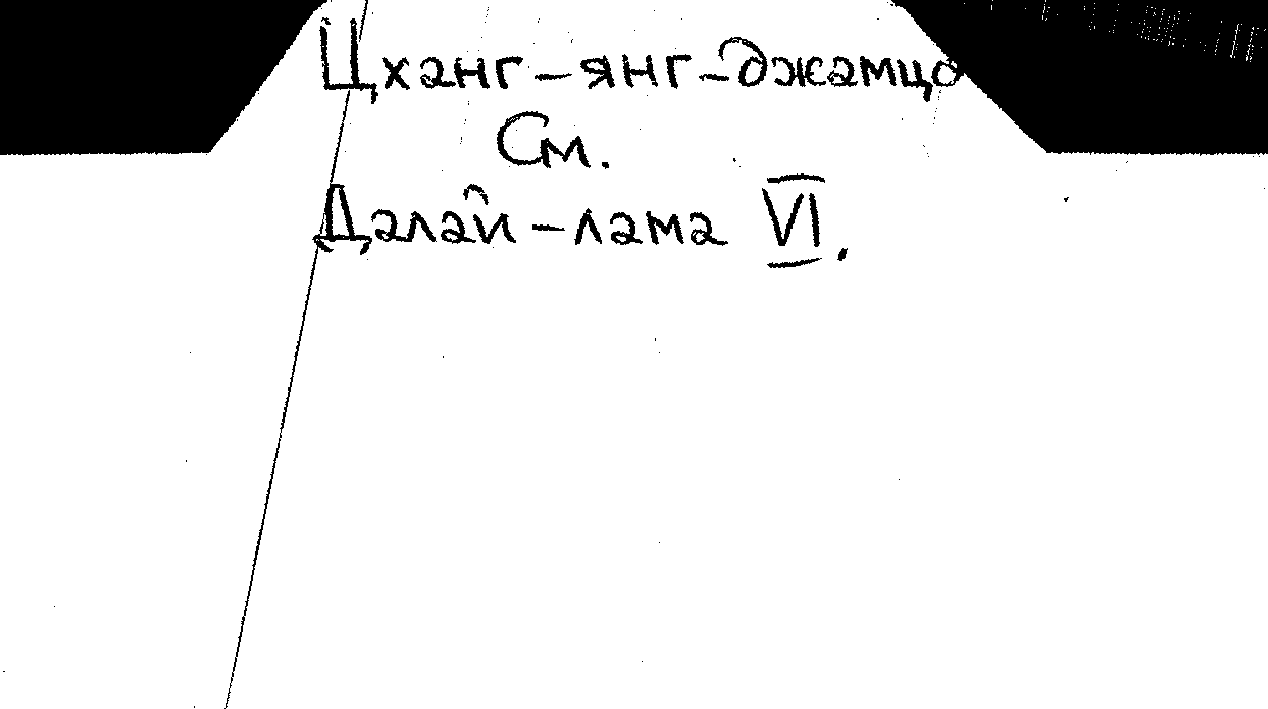 Цханг-янг-джамцо
См.
Далай-лама VI.